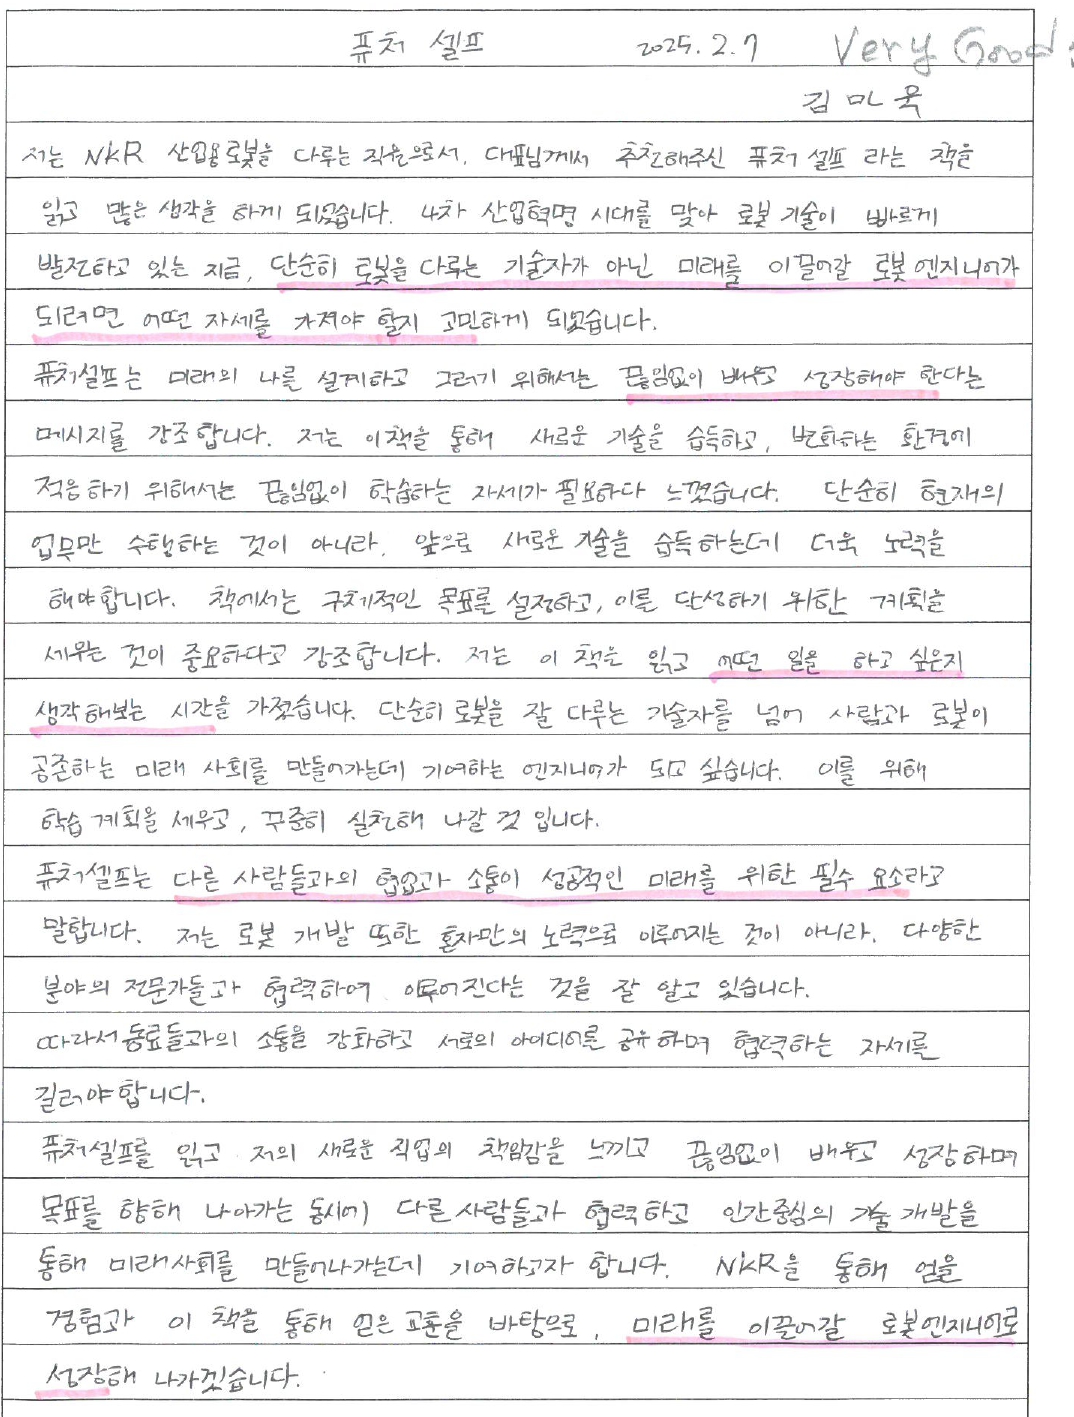 퓨처 셀프 2025. 2. 7 Very Good!
김민욱
저는 NKR 산업용로봇을 다루는 직원으로서, 대표님께서 추천해주신 퓨처 셀프 라는 책을
읽고 많은 생각을 하게 되었습니다. 4차 산업혁명 시대를 맞아 로봇 기술이 빠르게
발전하고 있는 지금, 단순히 로봇을 다루는 기술자가 아닌 미래를 이끌어갈 로봇 엔지니어가
되려면 어떤 자세를 가져야 할지 고민하게 되었습니다.
퓨처셀프는 미래의 나를 설계하고 그러기 위해서는 끊임없이 배우고 성장해야 한다는
메시지를 강조합니다. 저는 이책을 통해 새로운 기술을 습득하고, 변화하는 환경에
적응하기 위해서는 끊임없이 학습하는 자세가 필요하다 느꼈습니다. 단순히 현재의
업무만 수행하는 것이 아니라, 앞으로 새로운 기술을 습득하는데 더욱 노력을
해야합니다. 책에서는 구체적인 목표를 설정하고, 이를 달성하기 위한 계획을
세우는 것이 중요하다고 강조합니다. 저는 이 책을 읽고 어떤 일을 하고 싶은지
생각해보는 시간을 가졌습니다. 단순히 로봇을 잘 다루는 기술자를 넘어 사람과 로봇이
공존하는 미래 사회를 만들어가는데 기여하는 엔지니어가 되고 싶습니다. 이를 위해
학습 계획을 세우고, 꾸준히 실천해 나갈 것 입니다.
퓨처셀프는 다른 사람들과의 협업과 소통이 성공적인 미래를 위한 필수 요소라고
말합니다. 저는 로봇 개발 또한 혼자만의 노력으로 이루어지는 것이 아니라, 다양한
분야의 전문가들과 협력하여 이루어진다는 것을 잘 알고 있습니다.
따라서 동료들과의 소통을 강화하고 서로의 아이디어를 공유하며 협력하는 자세를
길러야합니다.
퓨처셀프를 읽고 저의 새로운 직업의 책임감을 느끼고 끊임없이 배우고 성장하며
목표를 향해 나아가는 동시에 다른사람들과 협력하고 인간중심의 기술 개발을
통해 미래사회를 만들어나가는데 기여하고자 합니다. NKR을 통해 얻을
경험과 이 책을 통해 얻은 교훈을 바탕으로, 미래를 이끌어갈 로봇엔지니어로
성장해 나가겠습니다.